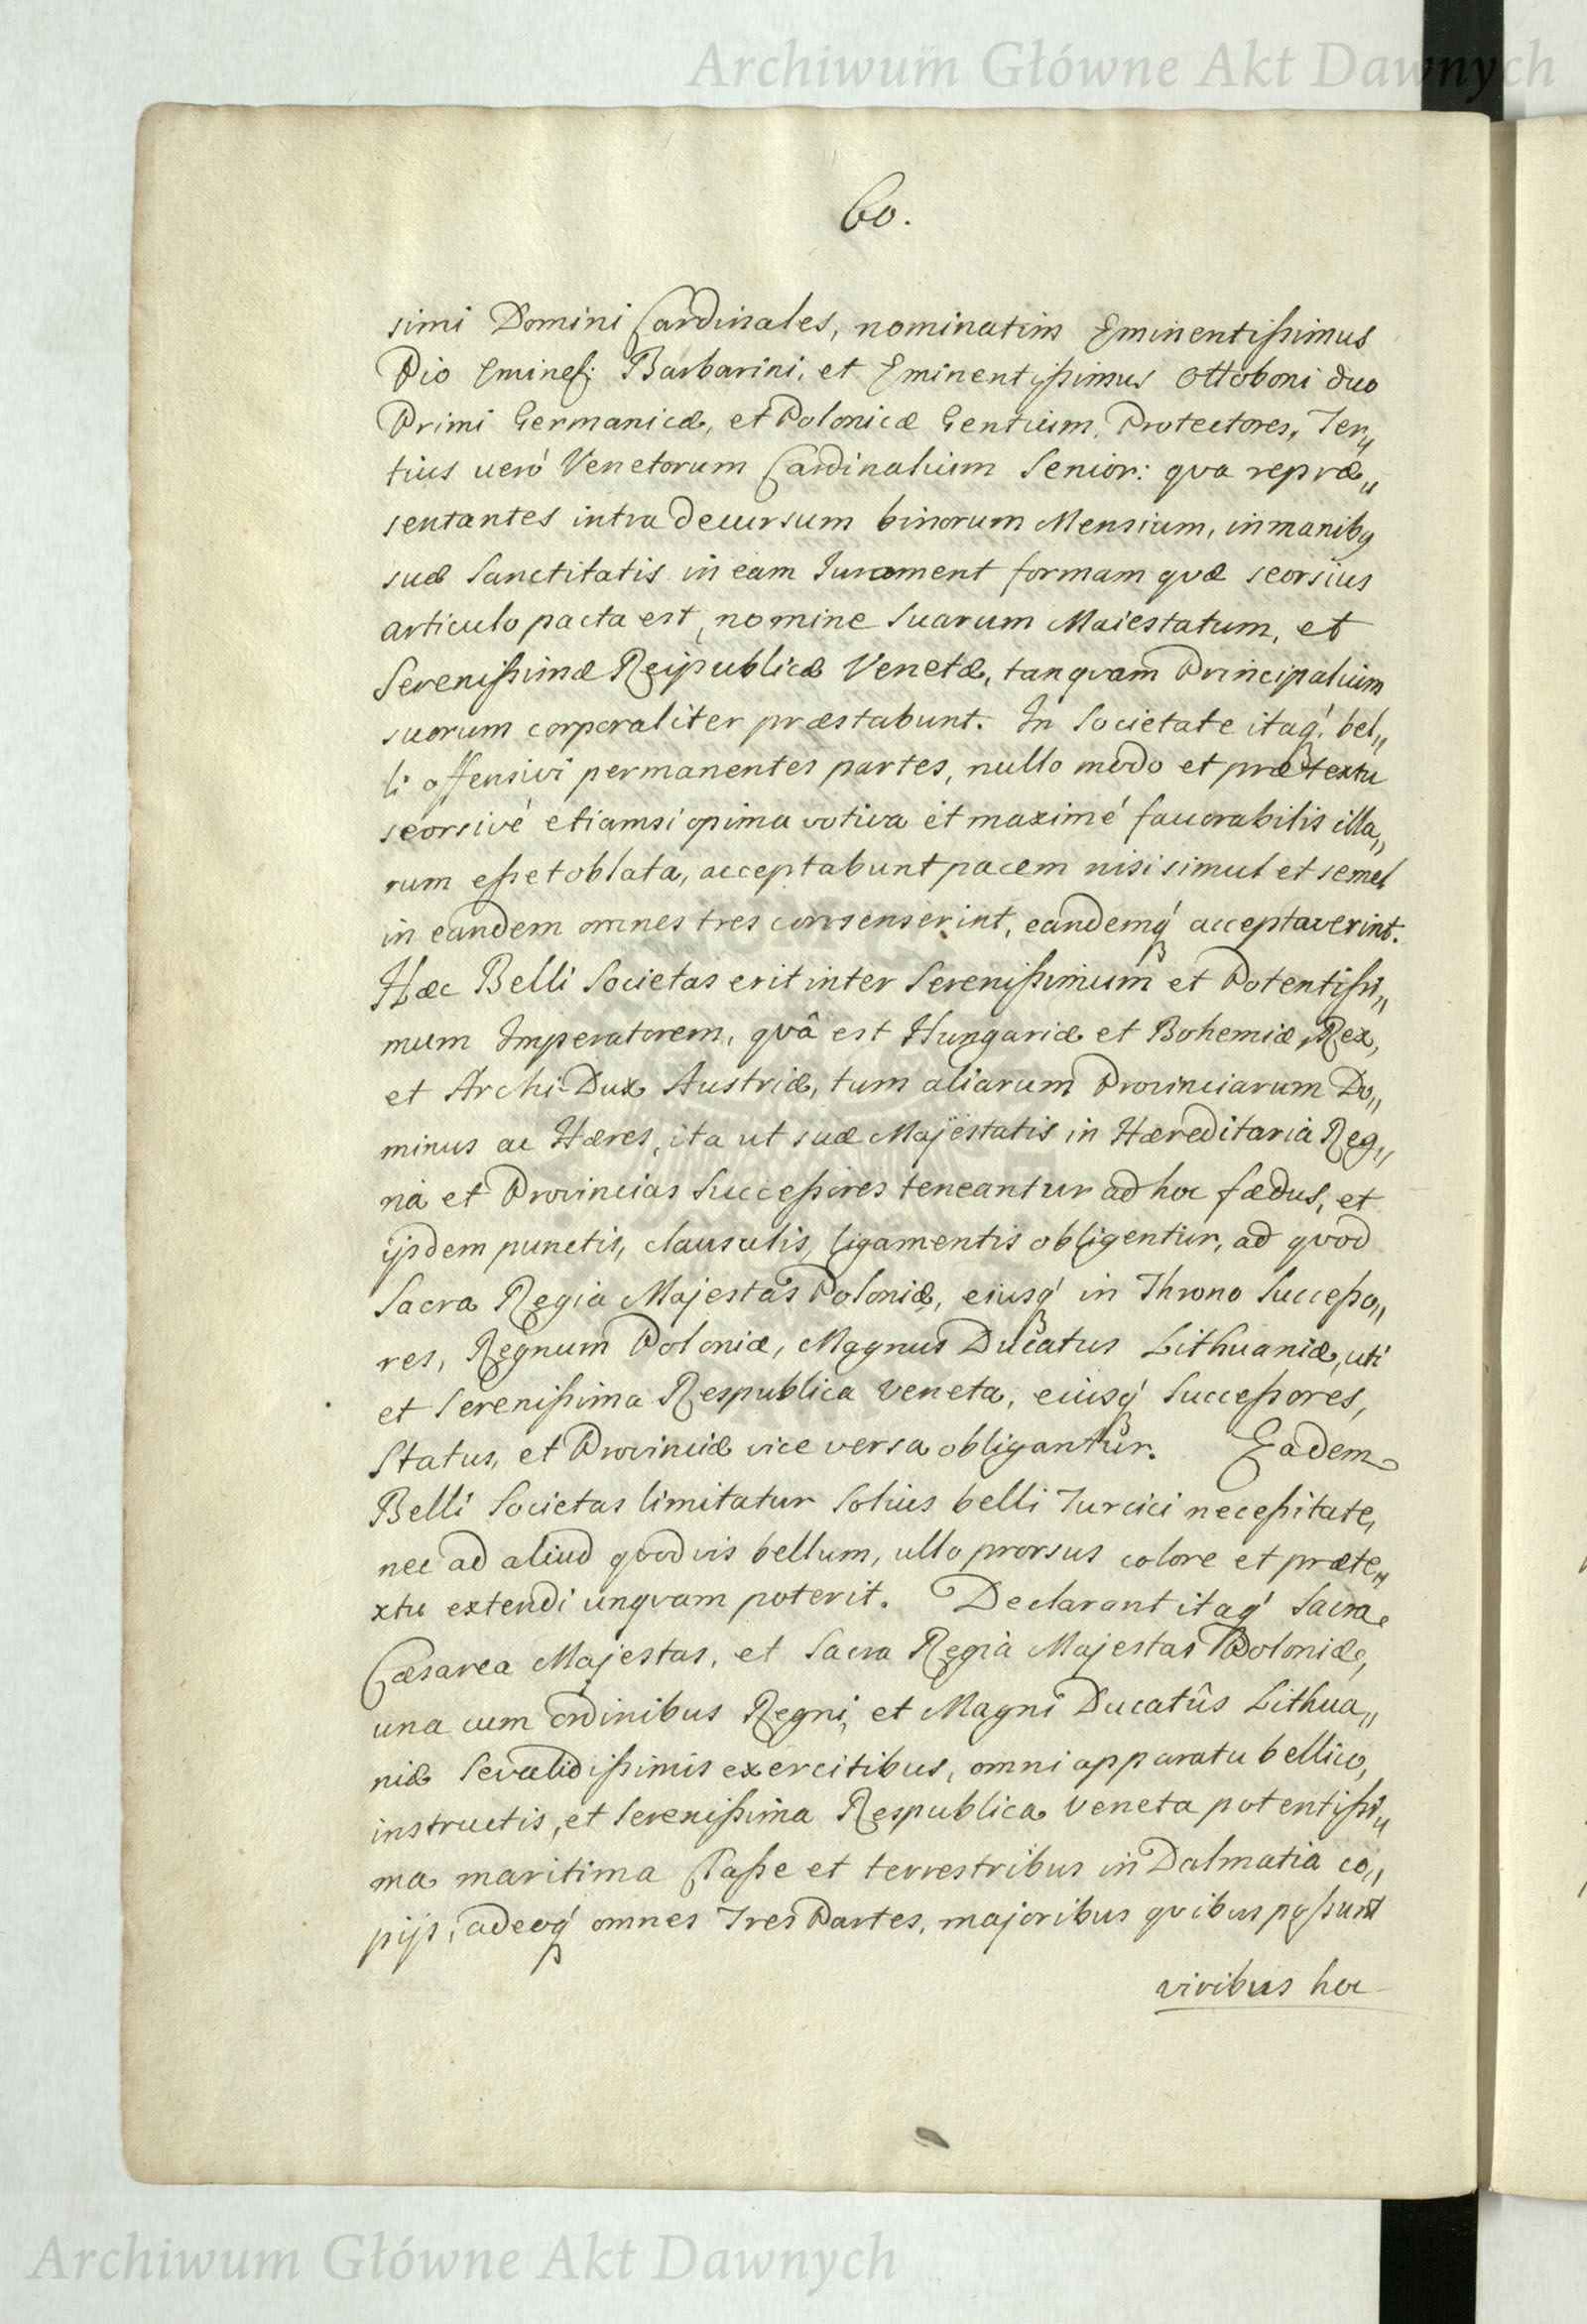 Archiwum Główne Akt Dawnych
60.
simi Domini Cardinales, nominatim Eminentissimus
Pio Eminess: Barbarini, et Eminentissimus Ottoboni duo
Primi Germanicæ, et Polonicæ Gentium, Protectores, Ter„
tius uerò Venetorum Cardinalium Senior: qva repræ„
sentantes intra decursum binorum Mensium, in manibq
suæ Sanctitatis in eam Jurament formam qvæ seorsius
articulo pacta est, nomine Suarum Maiestatum, et
Serenissimæ Reipublicæ Venetæ, tanqvam Principalium
suorum corporaliter præstabunt. In Societate itaq́; bel„
li offensivi permanentes partes, nullo modo et prætextu
seorsivè etiamsi opima votiva et maximè fauorabilis illa„
rum esset oblata, acceptabunt pacem nisi simul et semel
in eandem omnes tres consenserint, eandemq́ acceptaverint.
Hæc Belli Societas erit inter Serenissimum et Potentissi„
mum Imperatorem, qvâ est Hungariæ et Bohemiæ Rex,
et Archi-Dux Austriæ, tum aliarum Provinciarum Do„
minus ac Hæres, ita ut suæ Majestatis in Hæreditaria Reg„
na et Provincias Successores teneantur ad hoc fædus, et
ijsdem punctis, clausulis, ligamentis obligentur, ad qvod
Sacra Regia Majestas Poloniæ, eiusq́ in Throno Successo„
res, Regnum Poloniæ, Magnus Ducatus Lithuaniæ, uti
et Serenissima Respublica Veneta, eiusq́ Successores,
Status, et Provinciæ vice versa obligantur. Eadem
Belli Societas limitatur Solius belli Turcici necessitate,
nec ad aliud qvodvis bellum, ullo prorsus colore et præte„
xtu extendi unqvam poterit. Declarant itaq́ Sacra
Cæsarea Majestas, et Sacra Regia Majestas Poloniæ,
una cum ordinibus Regni, et Magni Ducatûs Lithua„
niæ Se validissimis exercitibus, omni apparatu bellico,
instructis, et Serenissima Respublica Veneta potentissi„
ma maritima Classe et terrestribus in Dalmatia co„
pijs, adeoq́ omnes Tres Partes, majoribus qvibus possunt
viribus hoc
Archiwum Główne Akt Dawnych